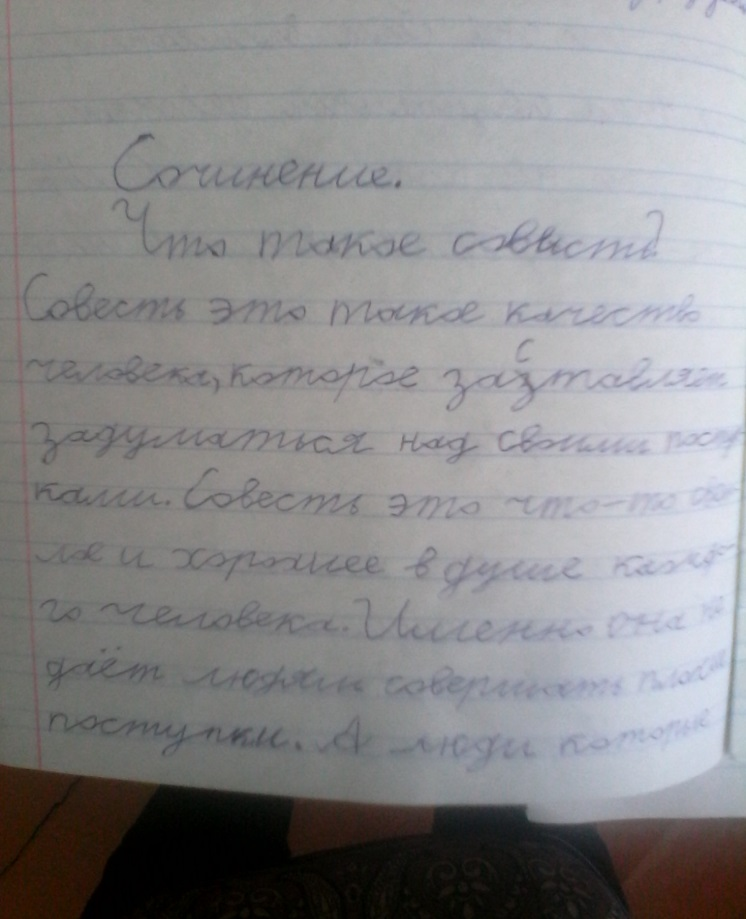 Сочинение.
Что такое совысть?
Совесть это такое качество
человека, которое застовляет
задуматься над своими поступ-
ками. Совесть это что-то
лое и хорошее в душе каждо-
го человека. Именно она не
даёт людям совершать плохие
поступки. А люди которые